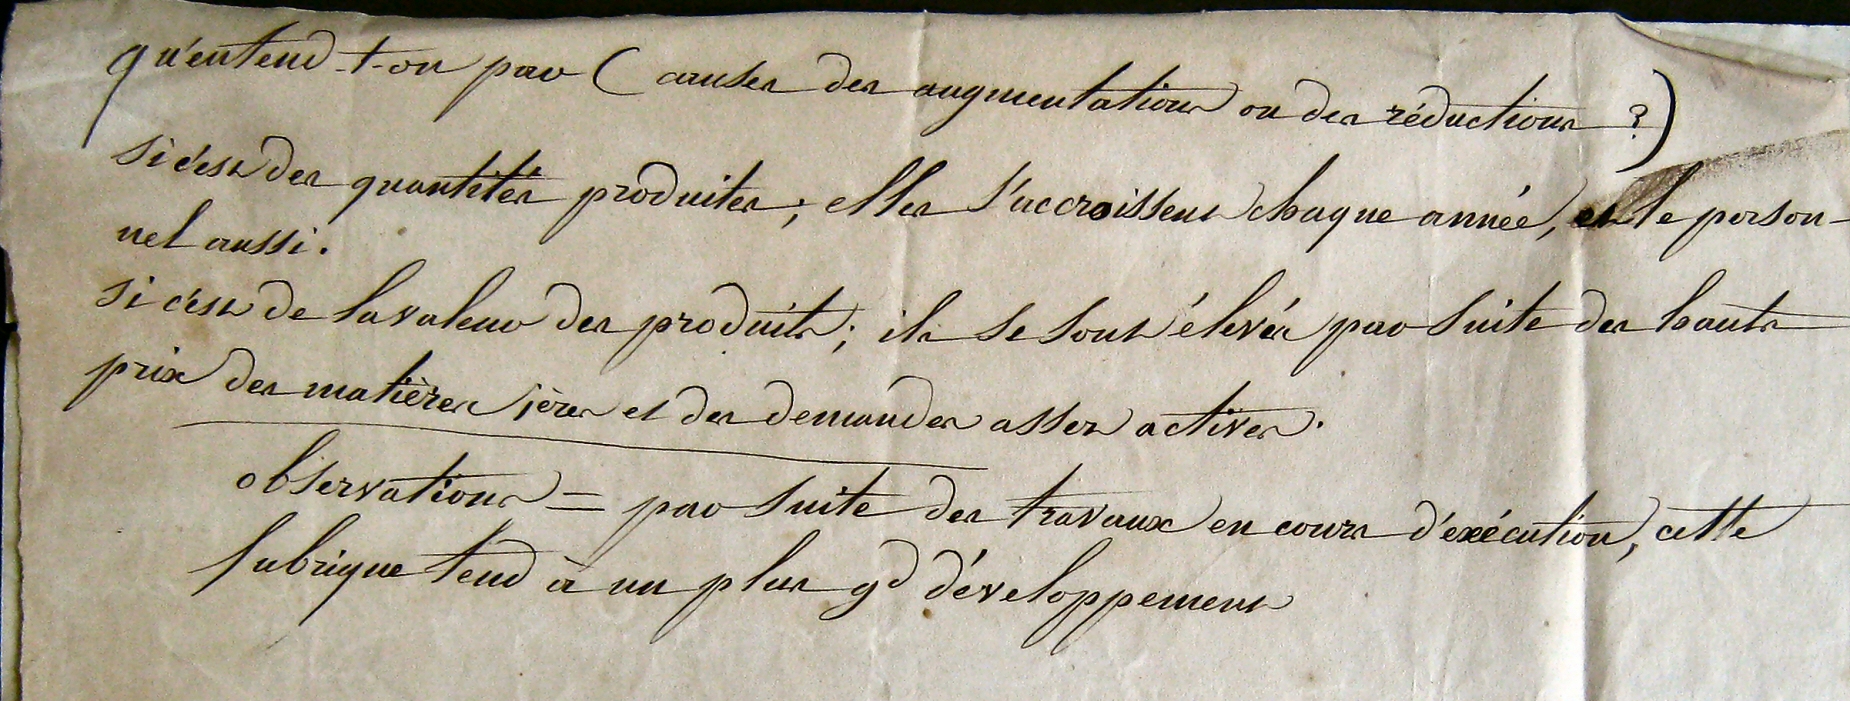 qu'entend-t-on par (causes des augmentations ou des réductions?)
si c'est des quantités produites; elles s'accroissent chaque année, et le person-
nel aussi.
si c'est de la valeur des produits; ils se sont élevés par suite des hauts
prix des matières 1ères et des demandes assez actives.
observations = par suite des travaux en cours d'exécution, cette
fabrique tend à un plus gd développement